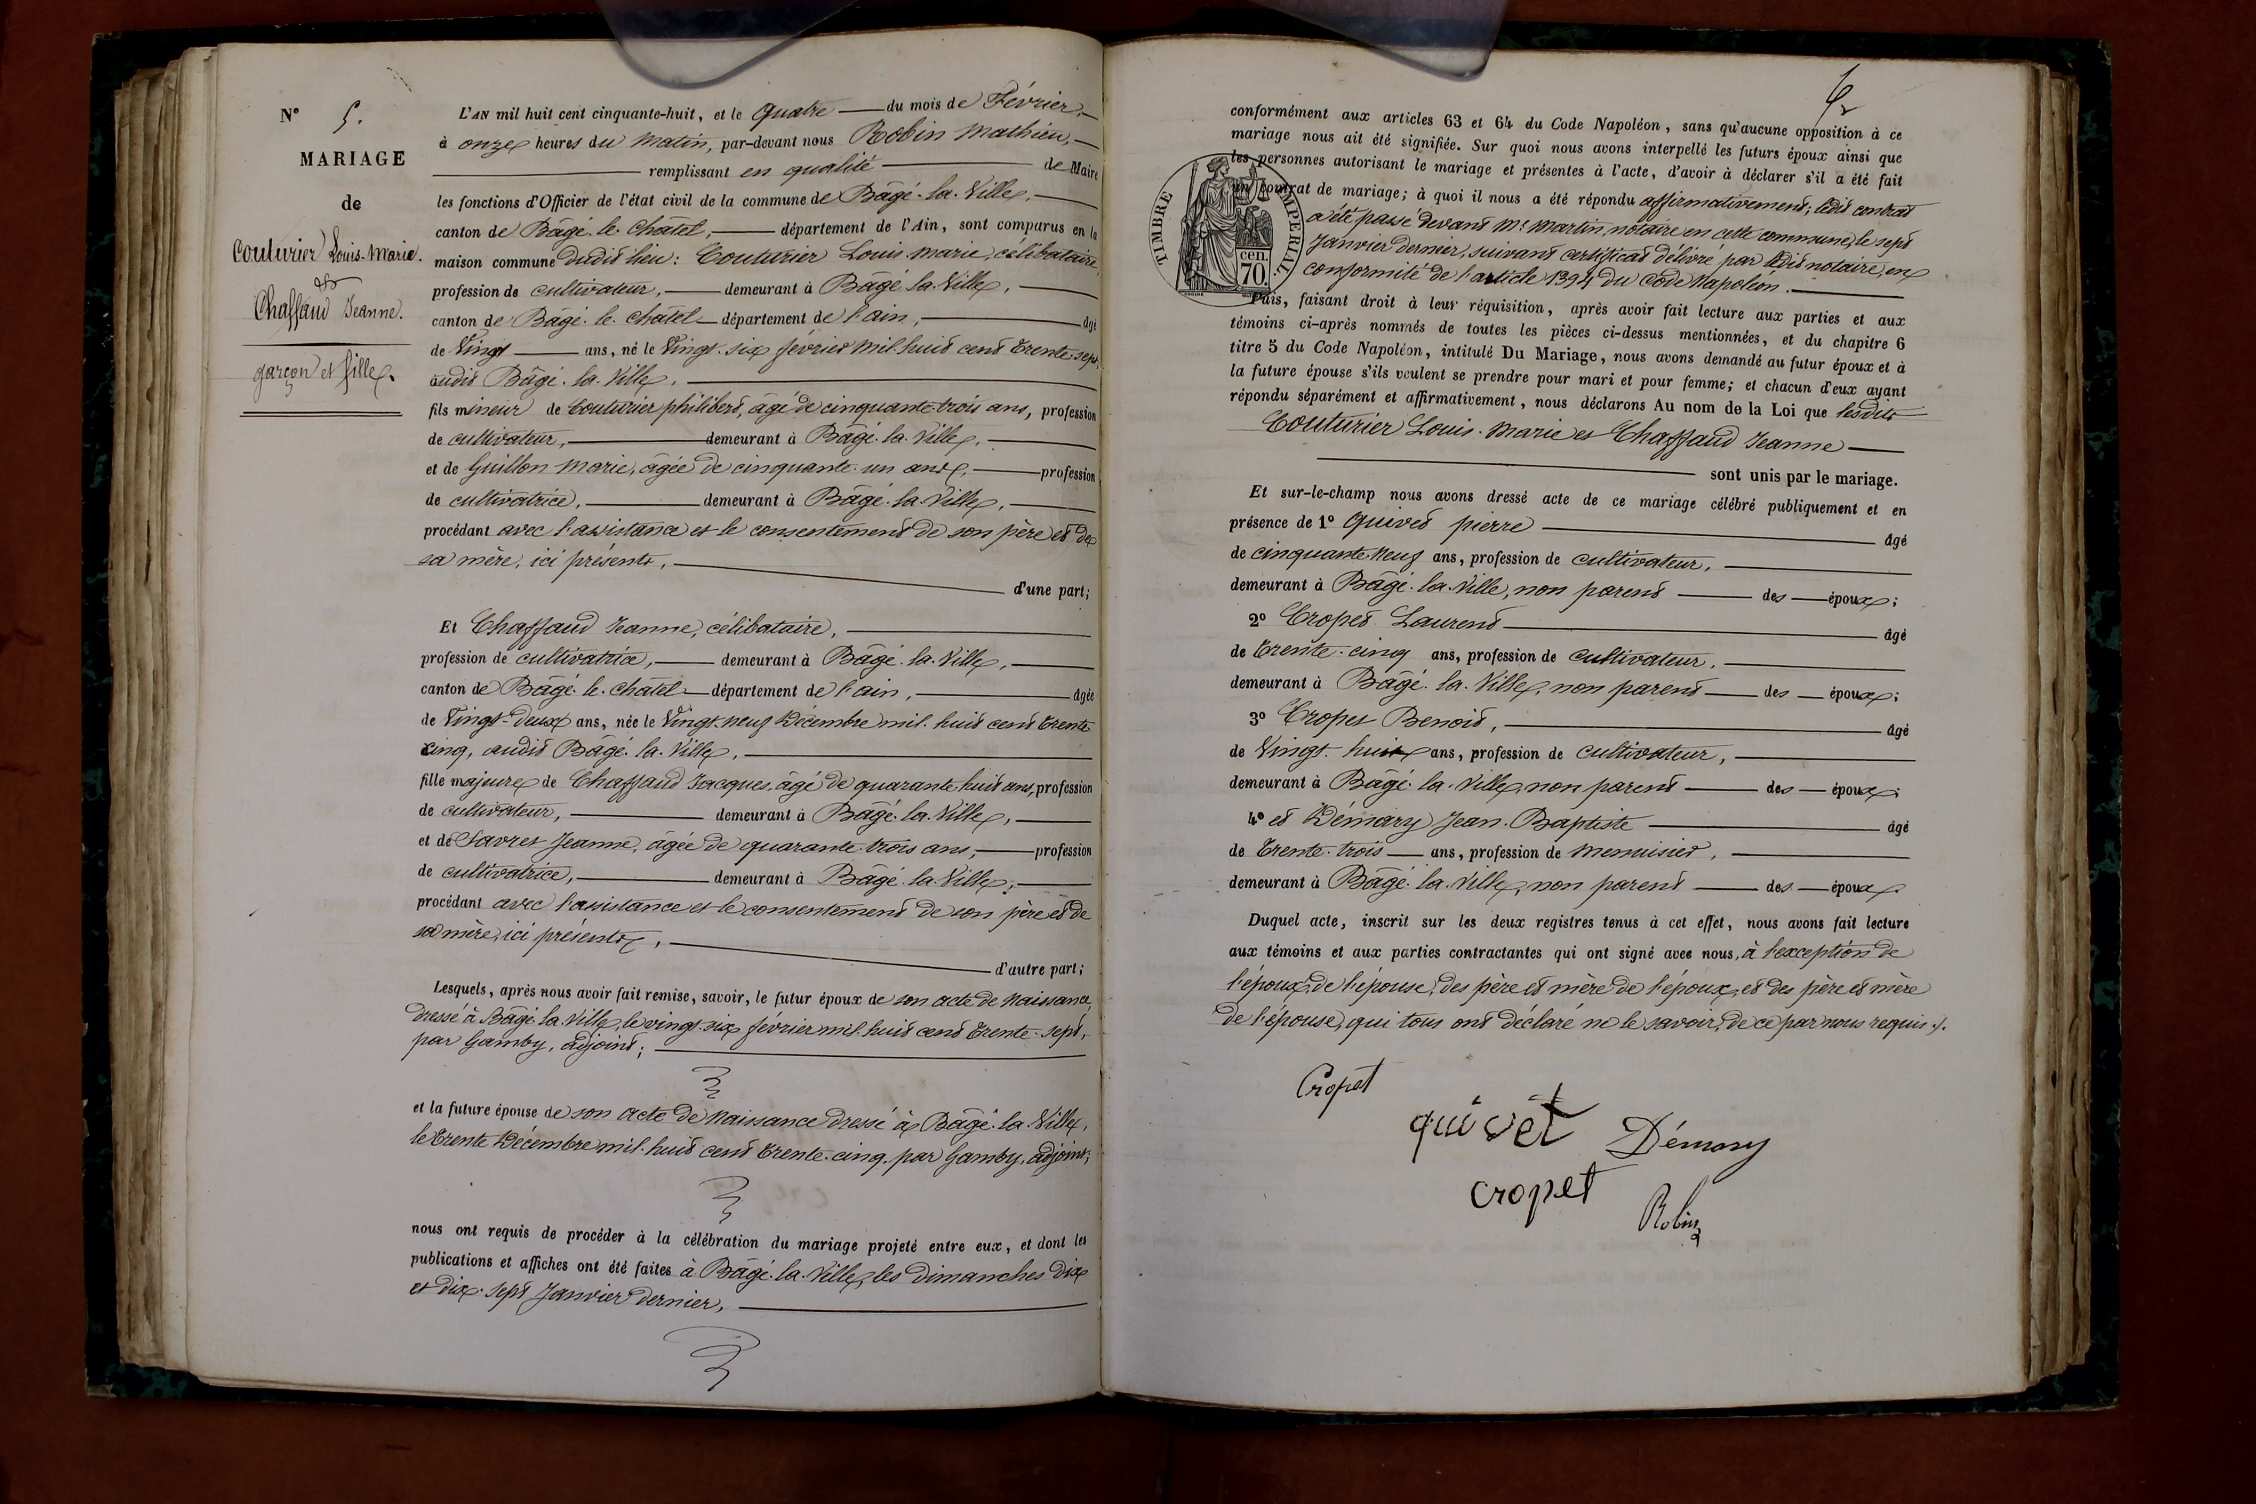 N° 5.
MARIAGE
de
Couturier Louis-Marie.
&
Chaffaud Jeanne.
garçon et fille.
L'AN mil huit cent cinquante-huit, et le quatre du mois de Février,
à onze heures du matin, par-devant nous Robin Mathieu,
remplissant en qualité de Maire
les fonctions d'Officier de l'état civil de la commune de Bâgé-la-Ville,
canton de Bâgé-le-Châtel, département de l'Ain, sont comparus en la
maison commune dudit lieu : Couturier Louis-Marie, célibataire,
profession de cultivateur, demeurant à Bâgé-la-Ville,
canton de Bâgé-le-Châtel département de l'ain, âgé
de Vingt ans, né le Vingt-six février mil-huit cent trente-sept,
audit Bâgé-la-Ville,
fils mineur de Couturier philibert, âgé de cinquante-trois ans, profession
de cultivateur, demeurant à Bâgé-la-Ville,
et de Guillon Marie, âgée de cinquante-un ans, profession
de cultivatrice, demeurant à Bâgé-la-Ville,
procédant avec l'assistance et le consentement de son père et de
sa mère, ici présents,
d'une part;
Et Chaffaud Jeanne, célibataire,
profession de cultivatrice, demeurant à Bâgé-la-Ville,
canton de Bâgé-le-Châtel département de l'ain, âgée
de Vingt-deux ans, née le Vingt-neuf Décembre mil-huit cent trente
cinq, audit Bâgé-la-Ville,
fille majeure de Chaffaud Jacques, âgé de quarante-huit ans, profession
de cultivateur, demeurant à Bâgé-la-Ville,
et de Savret Jeanne, âgée de quarante-trois ans, profession
de cultivatrice, demeurant à Bâgé-la-Ville,
procédant avec l'assistance et le consentement de son père et de
sa mère, ici présents,
d'autre part;
Lesquels, après nous avoir fait remise, savoir, le futur époux de son acte de naissance
dressé à Bâgé-la-Ville, le vingt-six février mil-huit cent trente-sept,
par Gamby, adjoint;
et la future épouse de son acte de naissance dressé à Bâgé-la-Ville,
le trente Décembre mil-huit cent trente-cinq, par Gamby, adjoint;
nous ont requis de procéder à la célébration du mariage projeté entre eux, et dont les
publications et affiches ont été faites à Bâgé-la-Ville, les dimanches dix
et dix-sept Janvier dernier,
conformément aux articles 63 et 64 du Code Napoléon, sans qu'aucune opposition à ce
mariage nous ait été signifiée. Sur quoi nous avons interpellé les futurs époux ainsi que
les personnes autorisant le mariage et présentes à l'acte, d'avoir à déclarer s'il a été fait
un contrat de mariage; à quoi il nous a été répondu affirmativement; ledit contrat
a été passé devant Me Martin, notaire en cette commune, le sept
Janvier dernier, suivant certificat délivré par ledit notaire, en
conformité de l'article 1394 du Code Napoléon.
TIMBRE IMPERIAL
cen. 70.
Puis, faisant droit à leur réquisition, après avoir fait lecture aux parties et aux
témoins ci-après nommés de toutes les pièces ci-dessus mentionnées, et du chapitre 6
titre 5 du Code Napoléon, intitulé Du Mariage, nous avons demandé au futur époux et à
la future épouse s'ils veulent se prendre pour mari et pour femme; et chacun d'eux ayant
répondu séparément et affirmativement, nous déclarons Au nom de la Loi que lesdits
Couturier Louis-Marie et Chaffaud Jeanne
sont unis par le mariage.
Et sur-le-champ nous avons dressé acte de ce mariage célébré publiquement et en
présence de 1° Quivet pierre âgé
de cinquante-neuf ans, profession de cultivateur,
demeurant à Bâgé-la-Ville, non parent des époux;
2° Cropet Laurent âgé
de trente-cinq ans, profession de cultivateur,
demeurant à Bâgé-la-Ville, non parent des époux;
3° Cropet Benoit, âgé
de Vingt-huit ans, profession de cultivateur,
demeurant à Bâgé-la-Ville, non parent des époux;
4° et Démary Jean-Baptiste âgé
de trente-trois ans, profession de menuisier,
demeurant à Bâgé-la-Ville, non parent des époux
Duquel acte, inscrit sur les deux registres tenus à cet effet, nous avons fait lecture
aux témoins et aux parties contractantes qui ont signé avec nous, à l'exception de
l'époux, de l'épouse, des père et mère de l'époux, et des père et mère
de l'épouse, qui tous ont déclaré ne le savoir, de ce par nous requis./.
Cropet
quivet
Démary
cropet
Robin